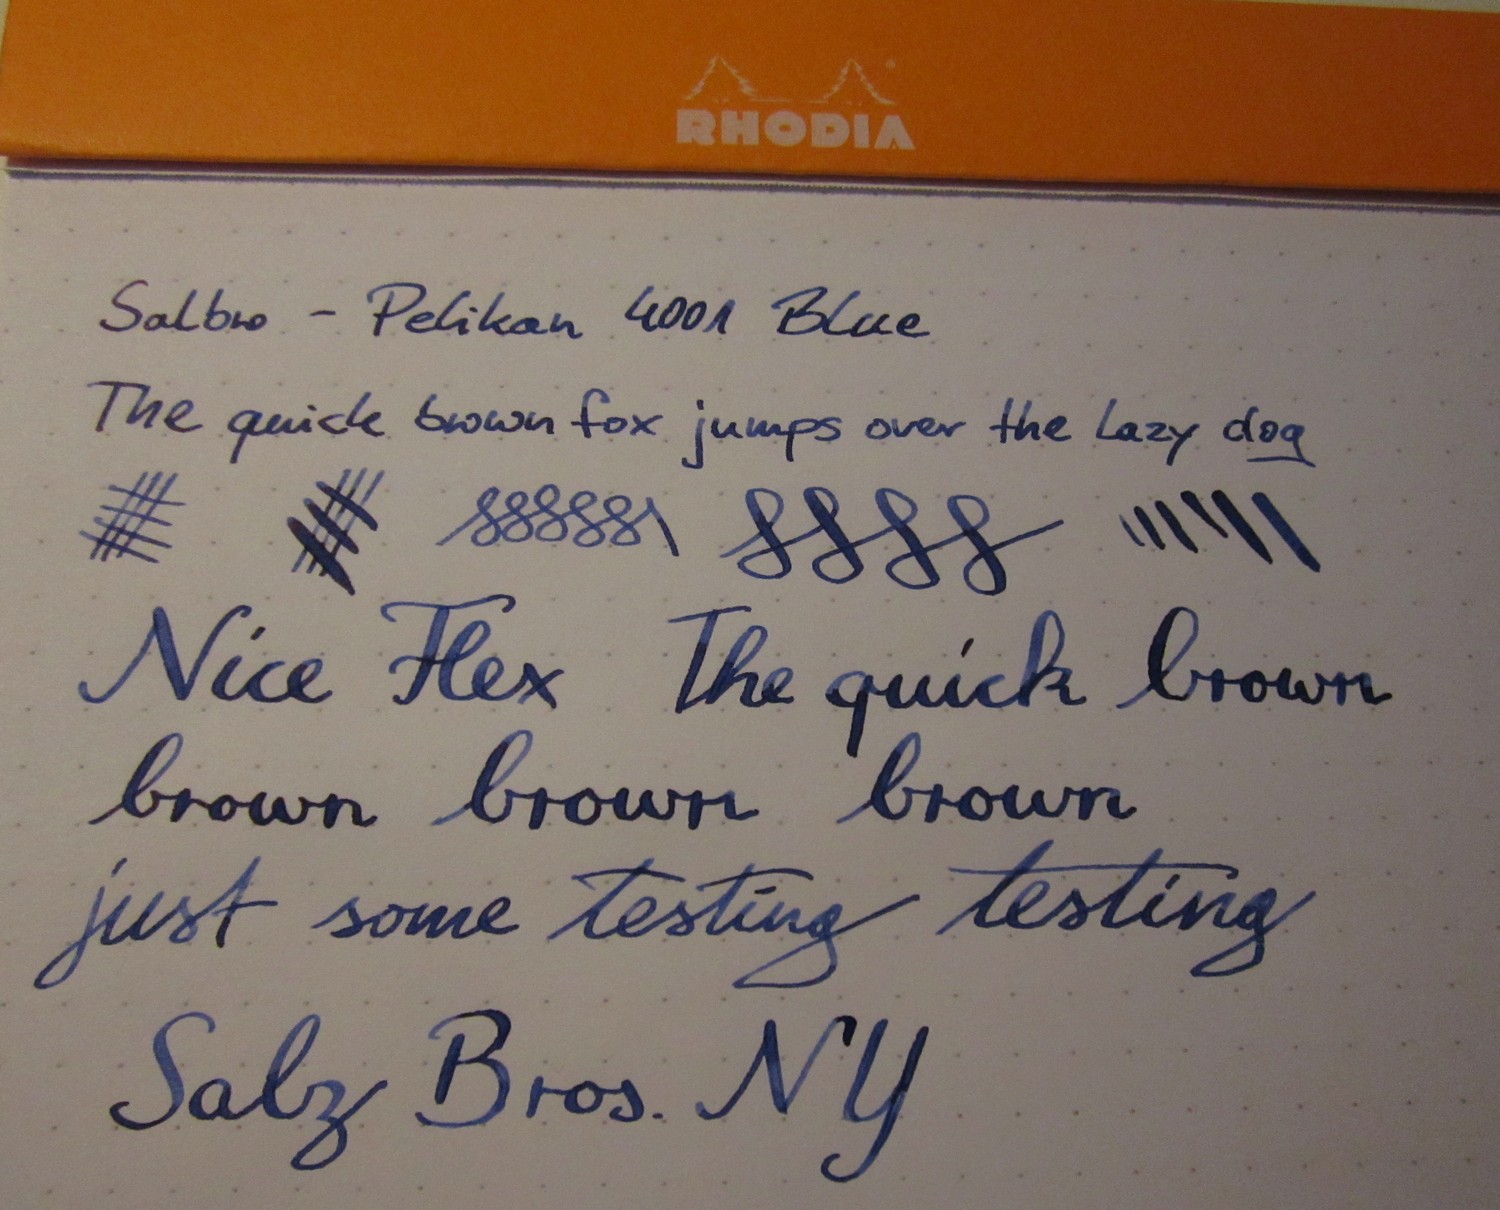 RHODIA
Salbro - Pelikan 4001 Blue
The quick brown fox jumps over the lazy dog
Nice Flex The quick brown
brown brown brown
just some testing testing
Salz Bros. NY